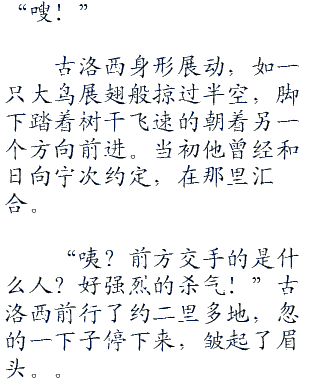 “嗖！”
古洛西身形展动，如一
只大鸟展翅般掠过半空，脚
下踏着树干飞速的朝着另一
个方向前进。当初他曾经和
日向宁次约定，在那里汇
合。
“咦？前方交手的是什
么人？好强烈的杀气！”古
洛西前行了约二里多地，忽
的一下子停下来，皱起了眉
头。。